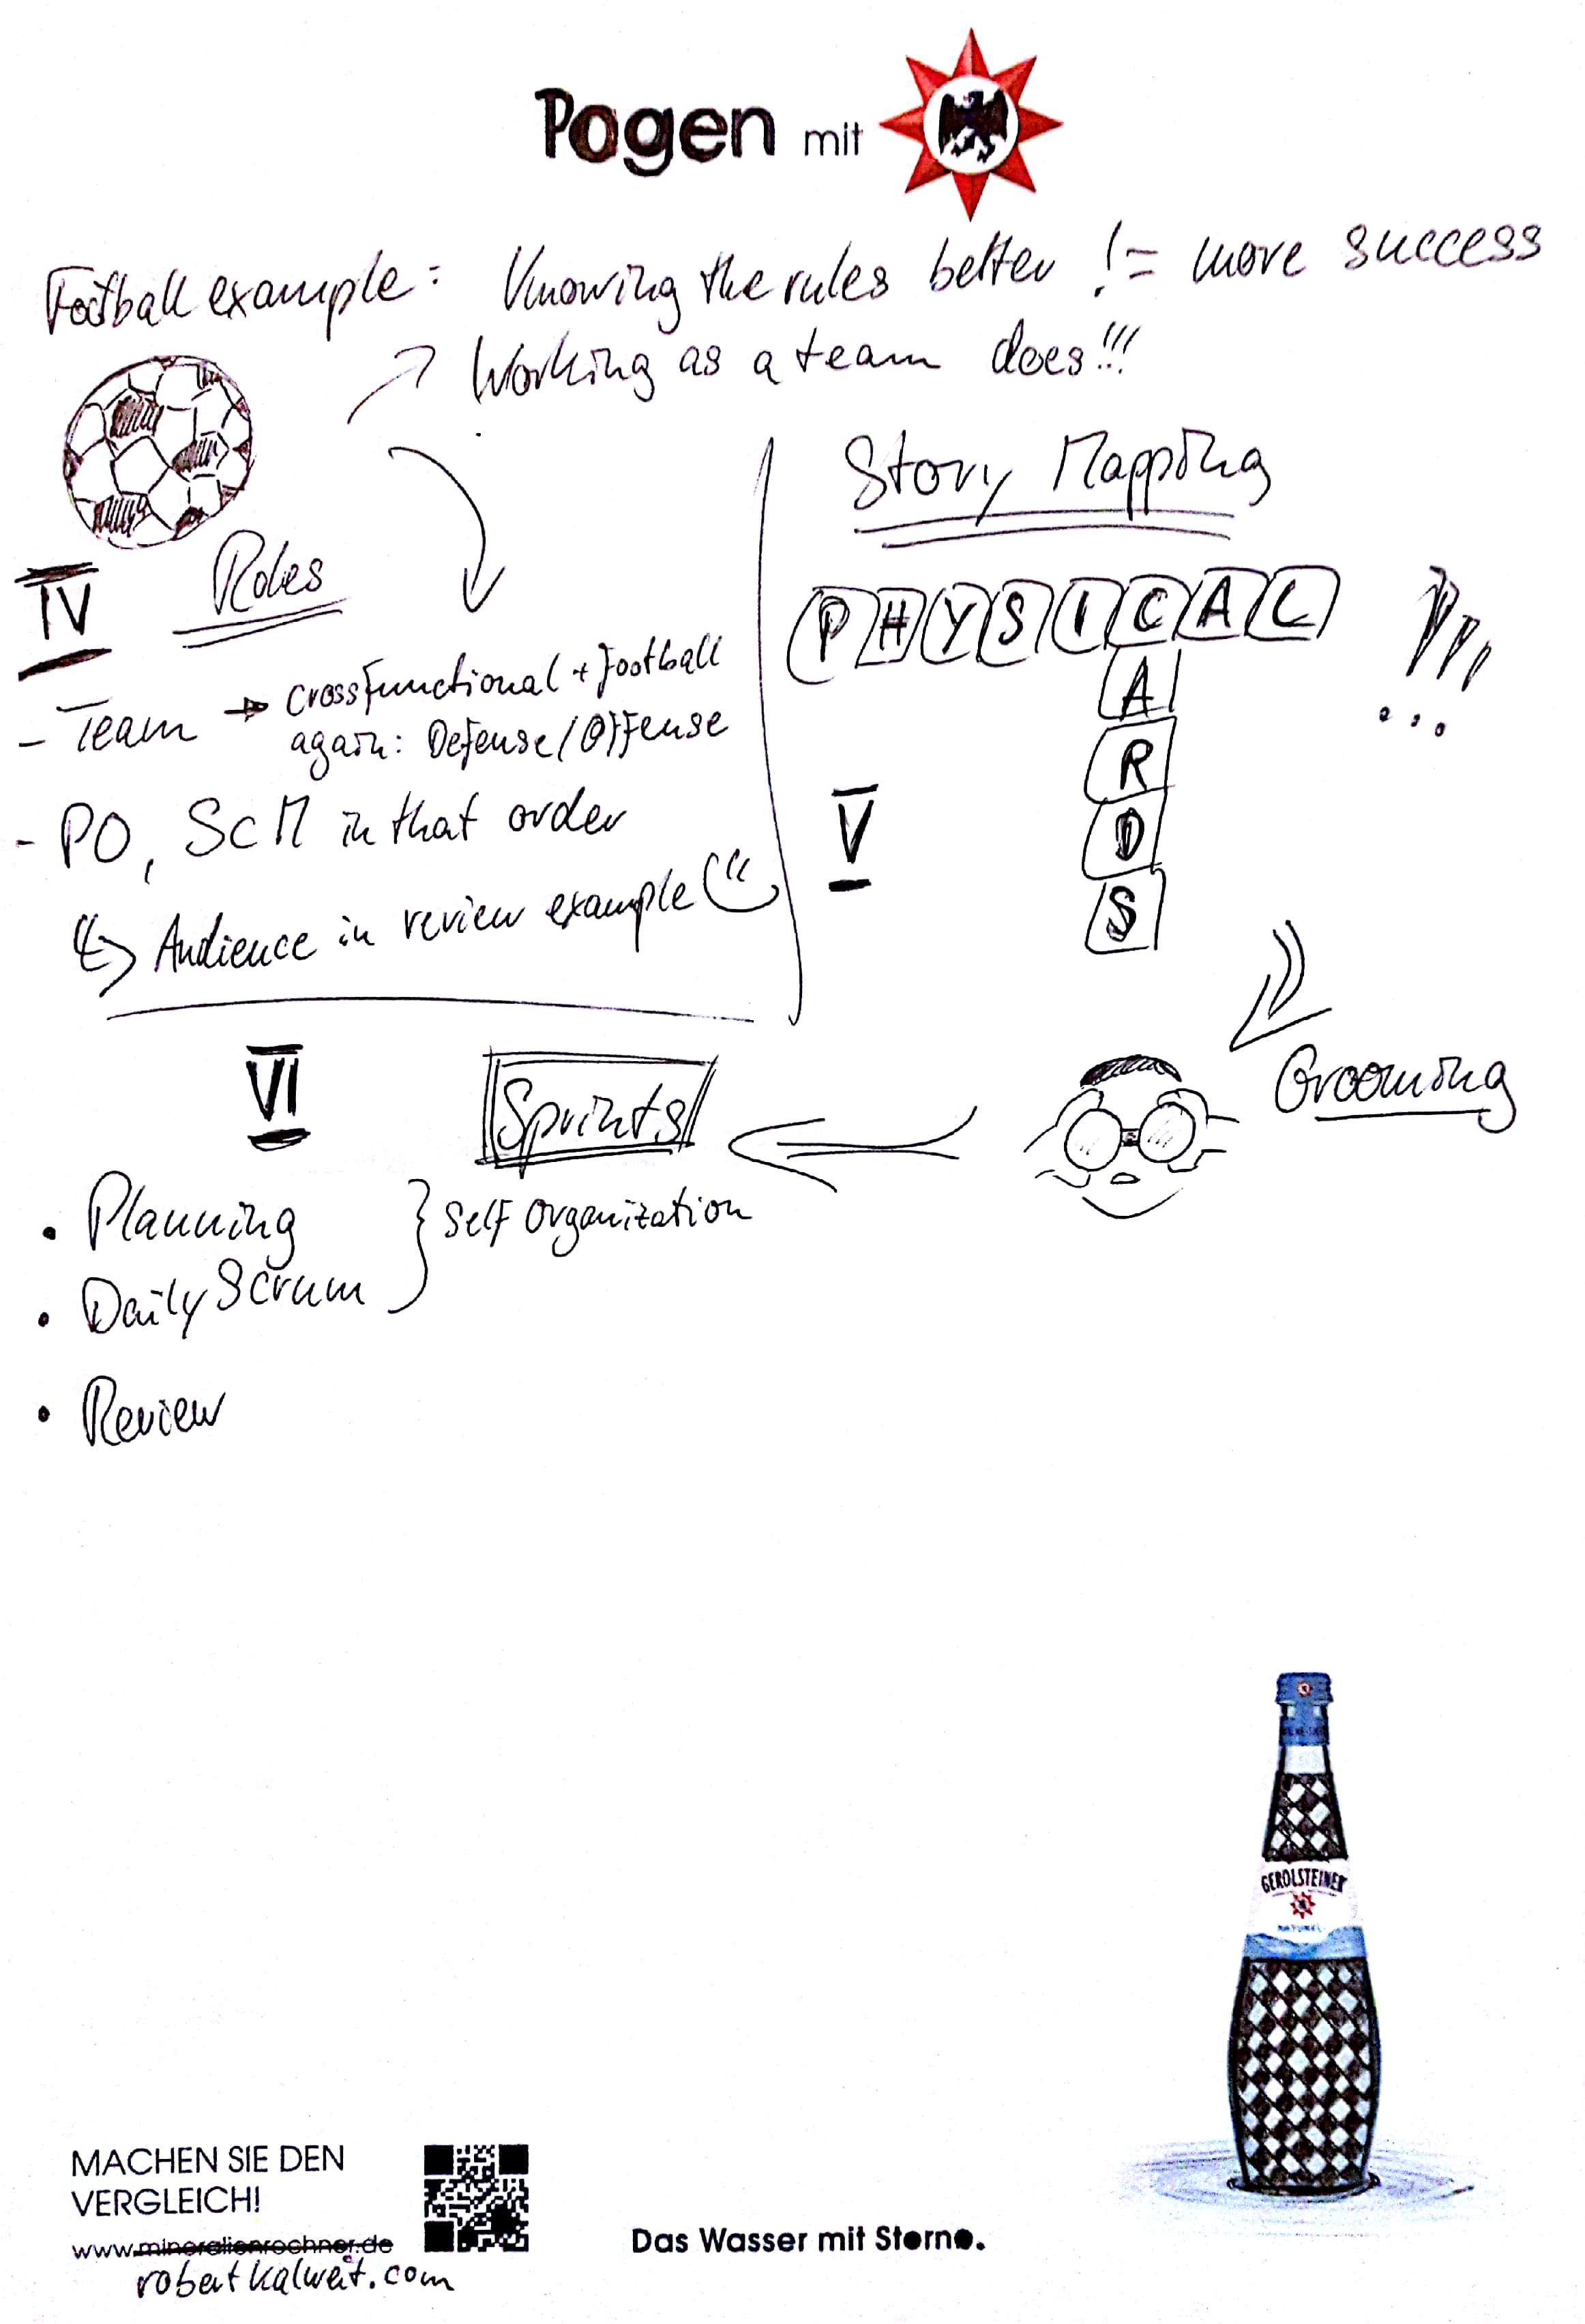 Pogen mit
Football example: Knowing the rules better != more success
Working as a team does!!!
IV Roles
- Team → crossfunctional + football
again: Defense/Offense
- PO, ScM in that order
Audience in review example
Story Mapping
PHYSICAL !!!
A
R
D
S
V
Grooming
VI Sprints
• Planning
• Daily Scrum
} Self Organization
• Review
GEROLSTEINER
NATURELL
MACHEN SIE DEN
VERGLEICH!
www.mineralienrechner.de
robertkalweit.com
Das Wasser mit Stern.